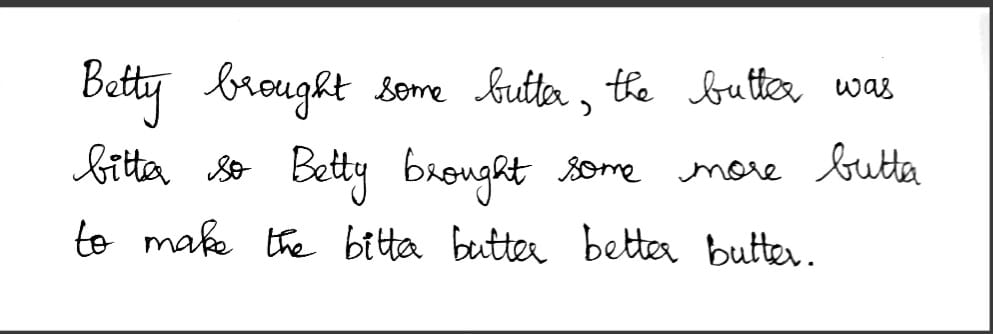 Betty brought some butter, the butter was
bitta so Betty brought some more butta
to make the bitta butter better butter.